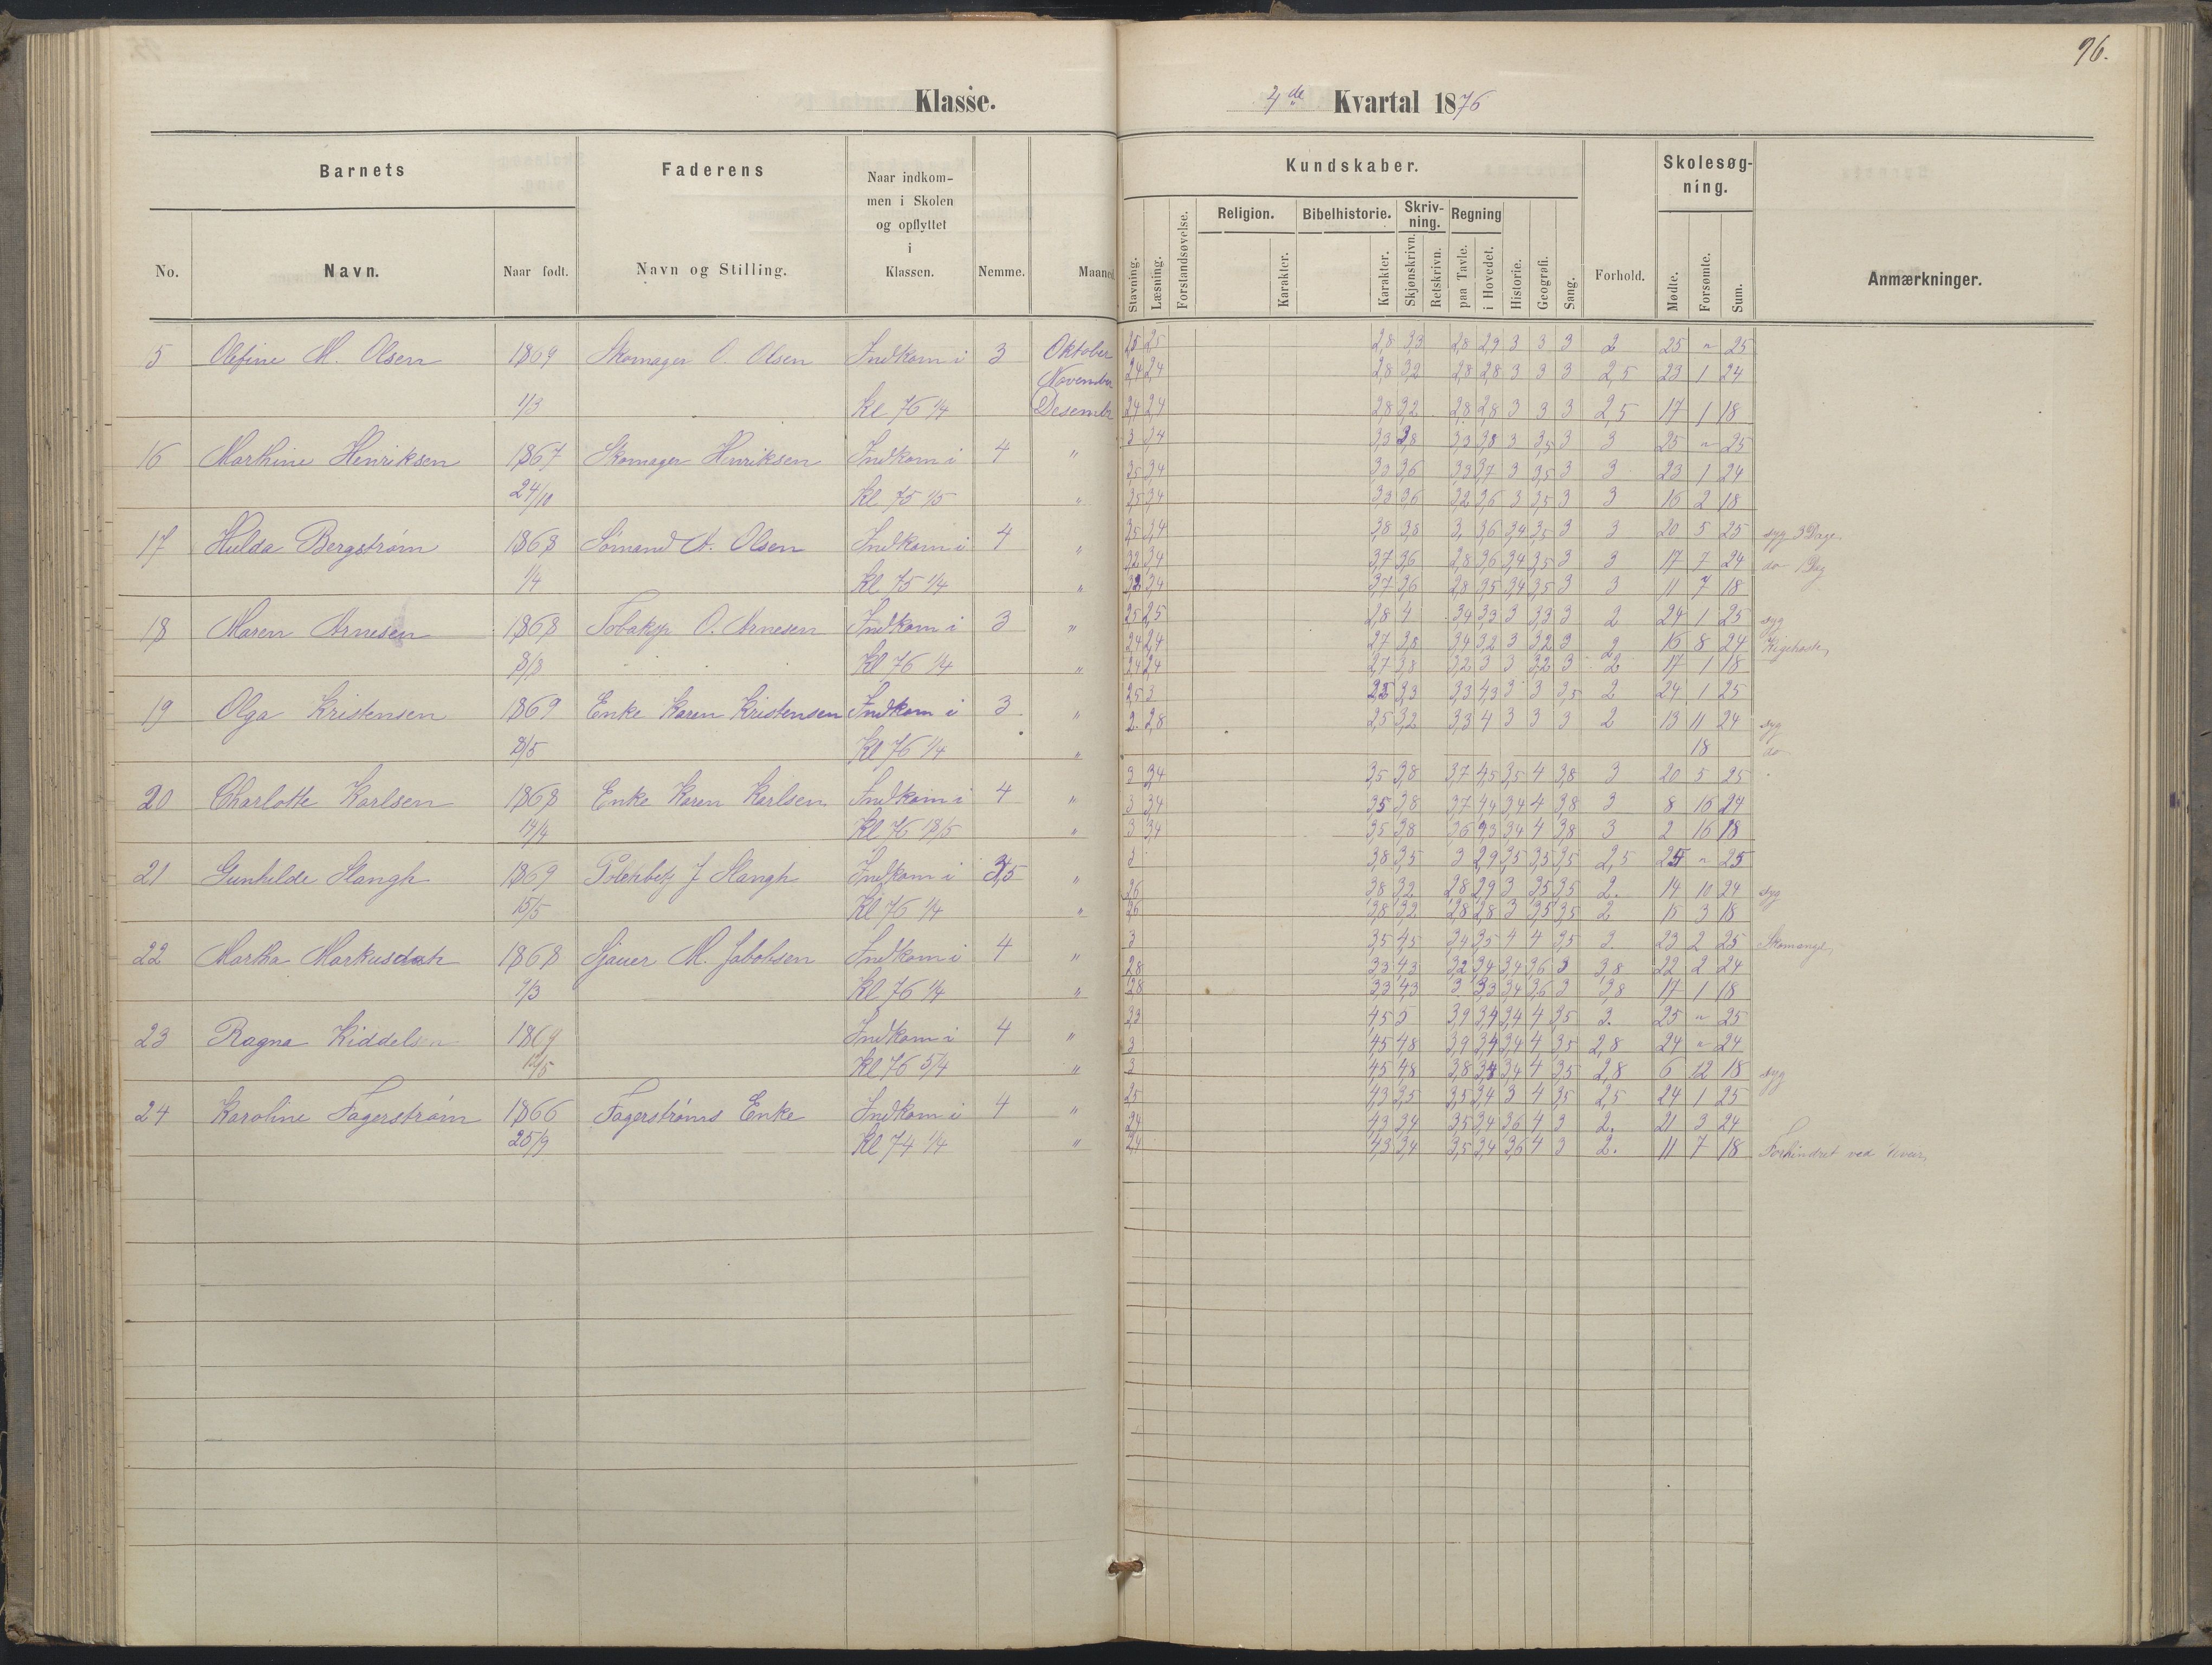 96.
Klasse. 4de Kvartal 1876
Barnets Faderens Naar indkom-
men i Skolen
og opflyttet
i
Klassen. Nemme. Maaned
No. Navn. Naar født. Navn og Stilling.
Kundskaber. Skolesøg-
ning.
Stavning. Læsning. Forstandsøvelse. Religion. Karakter. Bibelhistorie. Karakter. Skriv-
ning. Skjønskrivn. Retskrivn. Regning paa Tavle. i Hovedet. Historie. Geografi. Sang. Forhold. Mødte. Forsømte. Sum. Anmærkninger.
5 Olefine M. Olsen 1869 Skomager O. Olsen Indkom i 3 Oktober 2,5 2,5 2,8 3,3 2,8 2,9 3 3 3 2 25 " 25
November 2,4 2,4 2,8 3,2 2,8 2,8 3 3 3 2,5 23 1 24
1/3 Kl 76 1/4 Desembr 2,4 2,4 2,8 3,2 2,8 2,8 3 3 3 2,5 17 1 18
16 Marthine Henriksen 1867 Skomager Henriksen Indkom i 4 " 3 3,4 3,3 3,8 3,3 3,8 3 3,5 3 3 25 " 25
3,5 3,4 3,3 3,6 3,3 3,7 3 3,5 3 3 23 1 24
24/10 Kl 75 1/5 " 3,5 3,4 3,3 3,6 3,2 3,6 3 3,5 3 3 16 2 18
17 Hulda Bergstrøm 1868 Sømand A. Olsen Indkom i 4 " 3,5 3,4 3,8 3,8 3, 3,6 3,4 3,5 3 3 20 5 25 syg 3 Dage
3,2 3,4 3,7 3,6 2,8 3,6 3,4 3,5 3 3 17 7 24 do 1 Dag
1/4 Kl 75 1/4 " 3,2 3,4 3,7 3,6 2,8 3,5 3,4 3,5 3 3 11 7 18
18 Maren Arnesen 1868 O. Arnesen Indkom i 3 " 2,5 2,5 2,8 4 3,4 3,3 3 3,3 3 2 24 1 25 syg
2,4 2,4 2,7 3,8 3,4 3,2 3 3,2 3 2 16 8 24 Kighoste,
8/3 Kl 76 1/4 " 2,4 2,4 2,7 3,8 3,2 3 3 3,2 3 2 17 1 18
19 Olga Kristensen 1869 Enke Karen Kristensen Indkom i 3 " 2,5 3 2,5 3,3 3,3 4,3 3 3 3,5 2 24 1 25
2 2,8 2,5 3,2 3,3 4 3 3 3 2 13 11 24 syg
8/5 Kl 76 1/4 " 18 do
20 Charlotte Karlsen 1868 Enke Karen Karlsen Indkom i 4 " 3 3,4 3,5 3,8 3,7 4,5 3,5 4 3,8 3 20 5 25
3 3,4 3,5 3,8 3,7 4,4 3,4 4 3,8 3 8 16 24
14/4 Kl 76 18/5 " 3 3,4 3,5 3,8 3,6 4,3 3,4 4 3,8 3 2 16 18
21 Gunhilde Hangh 1869 J Hangh Indkom i 3,5 " 3 3,8 3,5 3 2,9 3,5 3,5 3,5 2,5 25 " 25
2,6 3,8 3,2 2,8 2,9 3 3,5 3,5 2. 14 10 24 syg
15/5 Kl 76 1/4 " 2,6 3,8 3,2 2,8 2,8 3 3,5 3,5 2 15 3 18
22 Martha Markusdatr 1868 Sjauer M. Jakobsen Indkom i 4 " 3 3,5 4,5 3,4 3,5 4 4 3,5 3 23 2 25 Skomangel,
2,8 3,3 4,3 3,2 3,4 3,4 3,6 3 3,8 22 2 24
9/3 Kl 76 1/4 " 2,8 3,3 4,3 3 3,3 3,4 3,6 3 3,8 17 1 18
23 Ragna Kiddelsen 1869 Indkom i 4 " 3,3 4,5 5 3,9 3,4 3,4 4 3,5 3. 25 " 25
3 4,5 4,8 3,9 3,4 3,4 4 3,5 2,8 24 " 24
Kl 76 5/4 " 3 4,5 4,8 3,8 3,4 3,4 4 3,5 2,8 6 12 18 syg
24 Karoline Fagerstrøm 1866 Fagerstrøms Enke Indkom i 4 " 2,5 4,3 3,5 3,5 3,4 3 4 3,5 2,5 24 1 25
2,4 4,3 3,4 3,5 3,4 3,6 4 3 2. 21 3 24
25/9 Kl 74 1/4 " 2,4 4,3 3,4 3,5 3,4 3,6 4 3 2. 11 7 18 Forhindret ved Uveir,